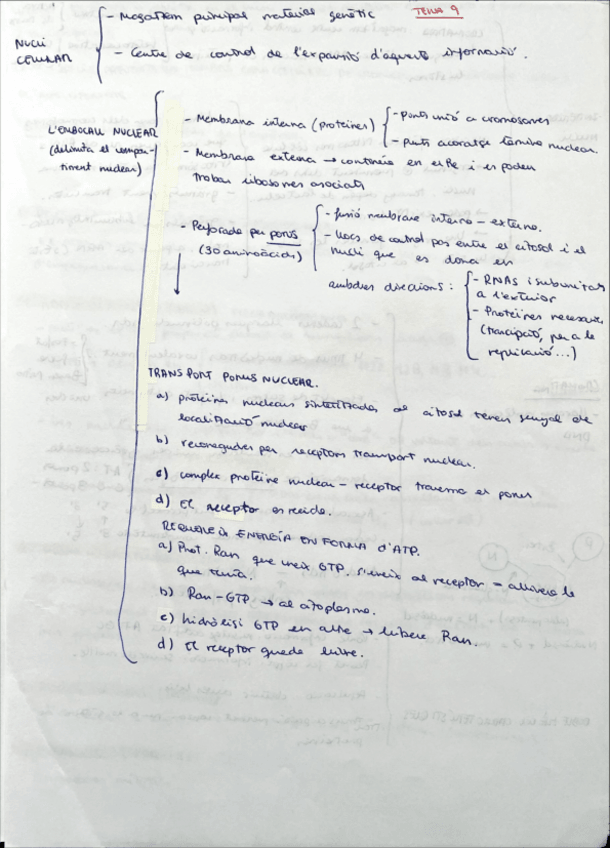 TEMA 9
NUCLI CEL·LULAR
- Magatzem principal material genètic
- Centre de control de l'expressió d'aquesta informació.
L'EMBOCALL NUCLEAR
(delimita el compar-
timent nuclear)
- Membrana interna (proteïnes)
- Punts unió a cromosomes
- Punts ancoratge làmina nuclear.
- Membrana externa → contínua en el RE i es poden
trobar ribosomes associats
- Perforada per porus
(30 aminoàcids)
- fusió membrana interna - externa.
- llocs de control pas entre el citosol i el
nucli que es dona en
ambdues direccions:
- RNAs i subunitats
a l'exterior
- Proteïnes necessàries
(transcripció, per a la
replicació...)
TRANSPORT PORUS NUCLEAR.
a) proteïnes nuclears sintetitzades al citosol tenen senyal de
localització nuclear
b) reconegudes per receptors transport nuclear.
c) complex proteïna nuclear - receptor travessa el porus
d) El receptor es recicla.
REQUEREIX ENERGÍA EN FORMA d'ATP.
a) Prot. Ran que uneix GTP. S'uneix al receptor = allibera la
que tenia.
b) Ran-GTP → al citoplasma.
c) hidròlisi GTP en altre → llibera Ran.
d) El receptor queda lliure.